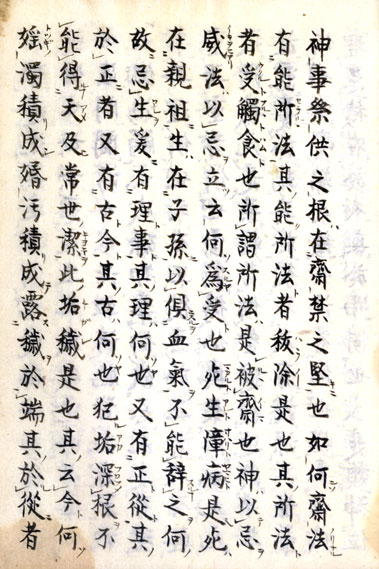 神事祭供之根在齋禁之堅也如何齋法
有能所法其能所法者秡除是也其所法
者受觸食也所謂所法是被齋也神以忌
威法以忌立云何爲受也死生障病是死
在親祖生在子孫以俱血氣不能辞之何
故忌生爰有理事其理何也又有正從其
於正者又有古今其古何也犯垢深根不
能得天及常世潔此垢穢是也其云今何
婬濁積成婚汚積成露穢於端其於從者